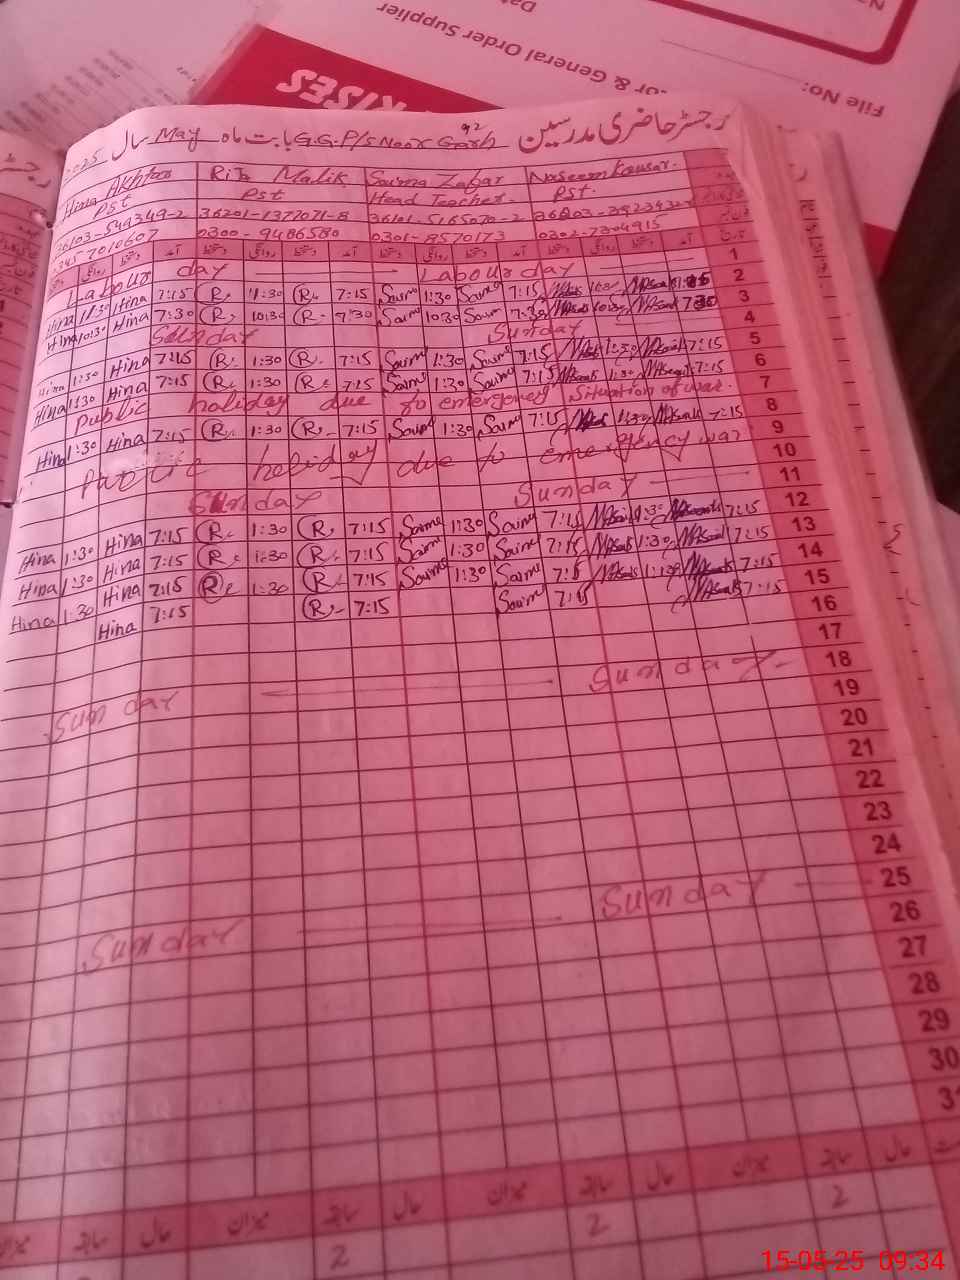 File No:
& General Order Supplier
RISES
رجسٹر حاضری مدرسین G.G.P/S Noor Garh بابت ماہ May سال 2025
Naseem Kousar. Saima Zafar Rija Malik Hina Akhtar
Pst. Head Teacher Pst Pst
36101-5165070-2 36201-1377071-8 36103-549349-2
0302-7304915 0301-8570173 0300-9486580 0345-7010607
آمد دستخط روانگی دستخط آمد دستخط روانگی دستخط آمد دستخط روانگی دستخط آمد دستخط روانگی
1 Labour day Labour day
2 7:15 Saima 1:30 Saima 7:15 R. 11:30 R. 7:15 Hina 11:30 Hina
3 7:30 Saima 10:30 Saima 7:30 R. 10:30 R. 7:30 Hina 10:30 Hina
4 Sunday Sunday
5 7:15 1:30 7:15 Saima 1:30 Saima 7:15 R. 1:30 R. 7:15 Hina 1:30 Hina
6 7:15 1:30 7:15 Saima 1:30 Saima 7:15 R. 1:30 R. 7:15 Hina 1:30 Hina
7 Public holiday due to emergency situation of war.
8 7:15 1:30 7:15 Saima 1:30 Saima 7:15 R. 1:30 R. 7:15 Hina 1:30 Hina
9 holiday due to emergency war
10
11 Sunday Sunday
12 7:15 1:30 7:15 Saima 1:30 Saima 7:15 R. 1:30 R. 7:15 Hina 1:30 Hina
13 7:15 1:30 7:15 Saima 1:30 Saima 7:15 R. 1:30 R. 7:15 Hina 1:30 Hina
14 7:15 1:30 7:15 Saima 1:30 Saima 7:15 R. 1:30 R. 7:15 Hina 1:30 Hina
15 7:15 7:15 Saima 7:15 R. 7:15 Hina
16
17
18 Sunday Sunday
19
20
21
22
23
24
25 Sunday Sunday
26
27
28
29
30
31
حال سابقہ میزان حال سابقہ میزان حال سابقہ میزان حال سابقہ میزان
2 2 2
15-05-25 09:34